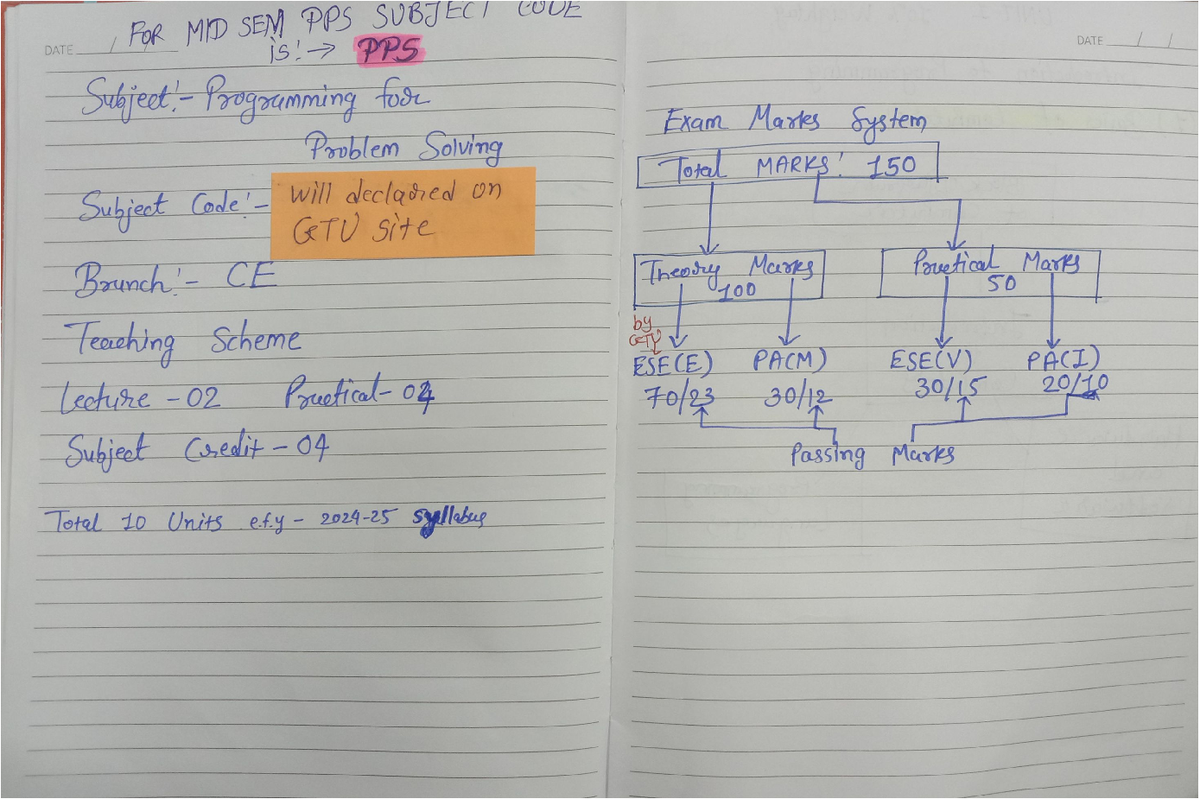 FOR MID SEM PPS SUBJECT CODE
is:→ PPS
DATE / /
Subject:- Programming foor
Problem Solving
Subject Code:- will declared on
GTU site
Branch:- CE
Teaching Scheme
Lecture - 02 Practical- 04
Subject Credit - 04
Total 10 Units e.f.y - 2024-25 Syllabus
DATE / /
Exam Marks System
Total MARKS: 150
Theory Marks Practical Marks
100 50
by
GTU
ESE(E) PA(M) ESE(V) PA(I)
70/23 30/12 30/15 20/10
Passing Marks